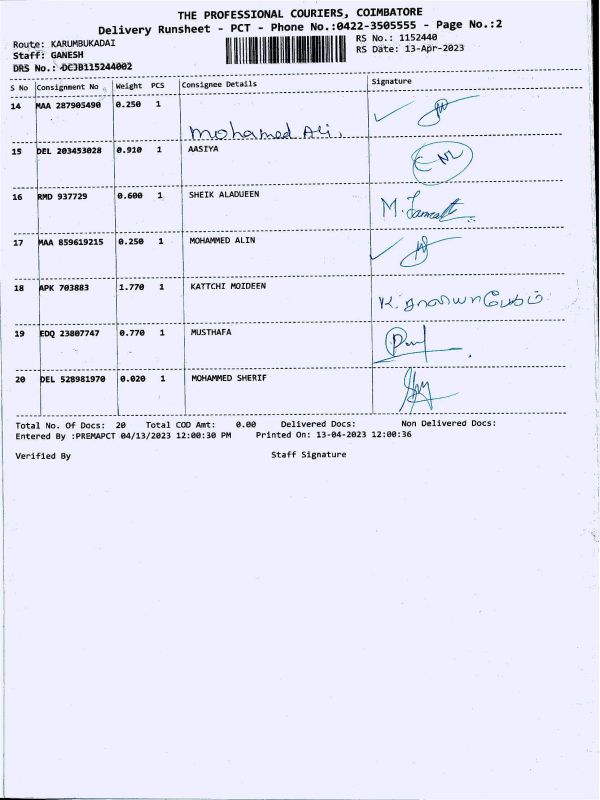 THE PROFESSIONAL COURIERS, COIMBATORE
Delivery Runsheet - PCT - Phone No.:0422-3505555 - Page No.:2
Route: KARUMBUKADAI RS No.: 1152440
Staff: GANESH RS Date: 13-Apr-2023
DRS No.: DCJB115244002
S No Consignment No Weight PCS Consignee Details Signature
14 MAA 287905490 0.250 1
Mohamed Ali,
15 DEL 203453028 0.910 1 AASIYA
16 RMD 937729 0.600 1 SHEIK ALADUEEN
M.
17 MAA 859619215 0.250 1 MOHAMMED ALIN
18 APK 703883 1.770 1 KATTCHI MOIDEEN
K.
19 EDQ 23807747 0.770 1 MUSTHAFA
20 DEL 528981970 0.020 1 MOHAMMED SHERIF
Total No. Of Docs: 20 Total COD Amt: 0.00 Delivered Docs: Non Delivered Docs:
Entered By :PREMAPCT 04/13/2023 12:00:30 PM Printed On: 13-04-2023 12:00:36
Verified By Staff Signature